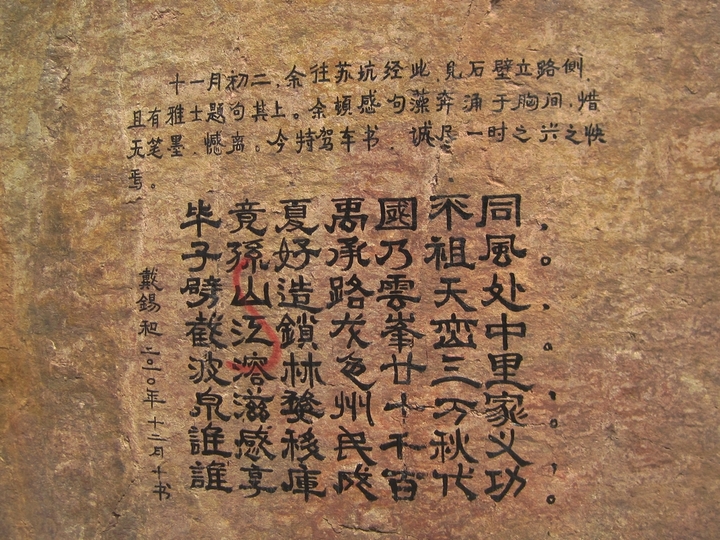 十一月初二，余往苏坑经此，见石壁立路侧，
且有雅士题句其上。余顿感句藻奔涌于胸间，惜
无笔墨，憾离。今特驾车书，诚尽一时之兴之快
焉。
毕竟夏禹國不同，
子孫好承乃祖風。
劈山造路雲天处，
截江鎖灰峯峦中。
波溶林色廿三里，
泉滋婺州十万家。
誰感移民千秋义，
誰享庫成百代功。
戴錫 二〇一〇年十二月十书